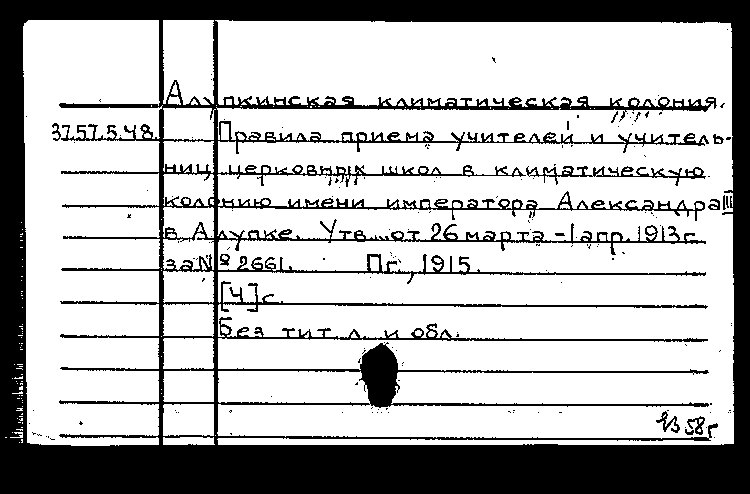 Алупкинская климатическая колония.
37.57.5.48. Правила приема учителей и учитель-
ниц церковных школ в климатическую
колонию имени императора Александра III
в Алупке. Утв. от 26 марта - 1 апр. 1913 г.
за № 2661. Пг., 1915.
[4] с.
Без тит. л. и обл.
58г